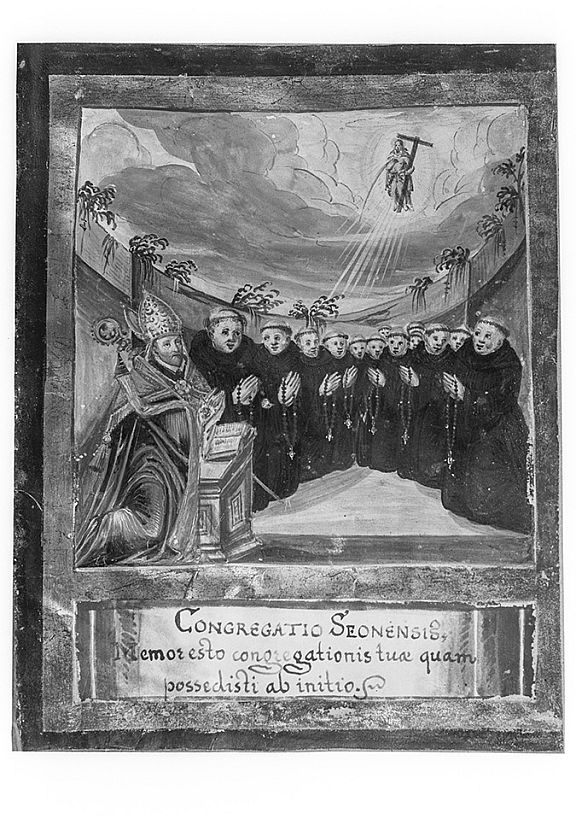 CONGREGATIO SEONENSIS,
Memor esto congregationis tuæ quam
possedisti ab initio.